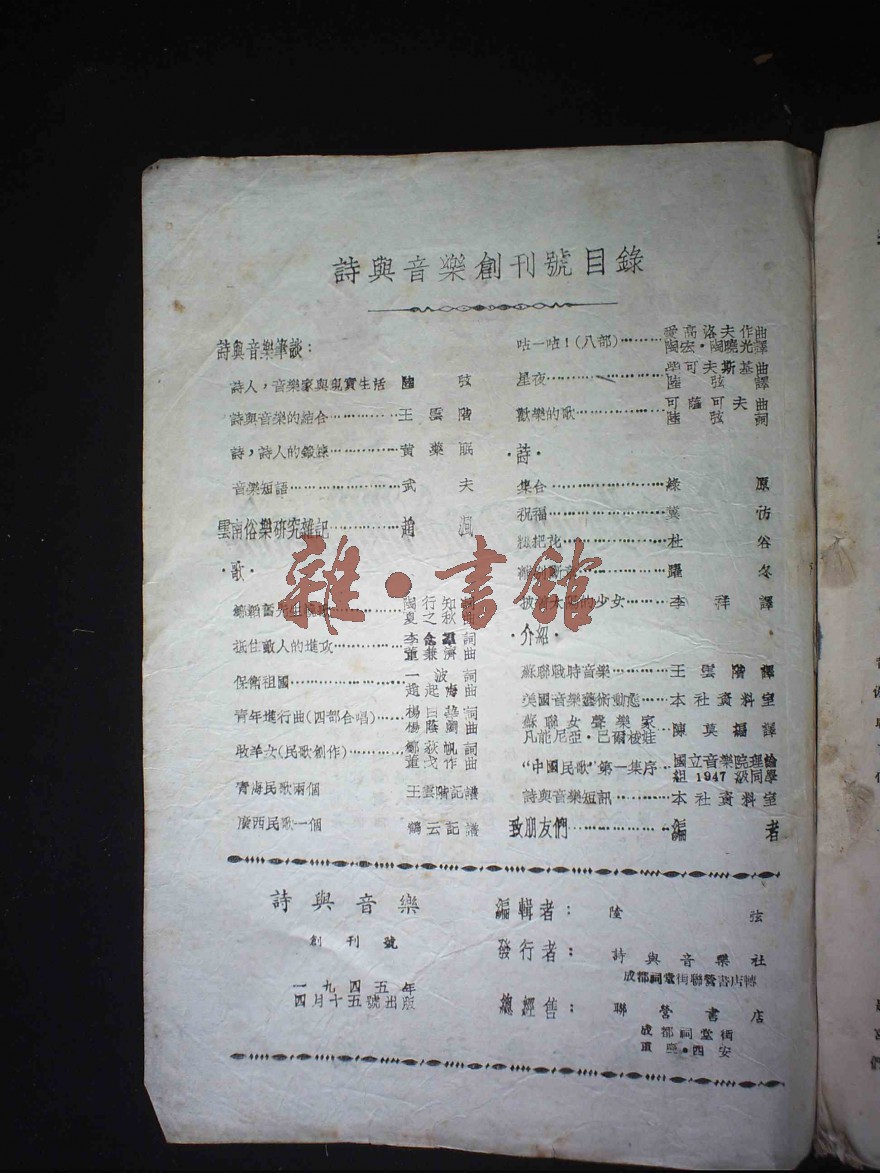 詩與音樂創刊號目錄
詩與音樂筆談：
詩人，音樂家與現實生活 陸弦
詩與音樂的結合…………王雲階
詩，詩人的鍛鍊…………黃藥眠
音樂短語…………武夫
雲南俗樂研究雜記…………趙渢
·歌·
陶行知詞
夏之秋曲
抵住敵人的進攻…… 李念羣詞
董兼濟曲
保衛祖國…………一波詞
趙起海曲
青年進行曲(四部合唱)……楊白華詞
楊蔭瀏曲
牧羊女(民歌創作)……鄒荻帆詞
董戈作曲
青海民歌兩個 王雲階記譜
廣西民歌一個 鶴云記譜
咕一咕！(八部)………愛高洛夫作曲
陶宏·陶曉光譯
星夜…………柴可夫斯基曲
陸弦譯
歡樂的歌…………可薩可夫曲
陸弦詞
·詩·
集合…………綠原
祝福…………冀汸
杜谷
羅冬
的少女……李祥譯
·介紹·
蘇聯戰時音樂………王雲階譯
美國音樂藝術動態……本社資料室
蘇聯女聲樂家
凡能尼亞·巴爾梭娃……陳莫福譯
“中國民歌”第一集序…國立音樂院理論
組1947級同學
詩與音樂短訊………本社資料室
致朋友們…………編者
詩與音樂
創刊號
一九四五年
四月十五號出版
編輯者： 陸弦
發行者： 詩與音樂社
成都祠堂街聯營書店轉
總經售： 聯營書店
成都祠堂街
重慶·西安
雜·書館